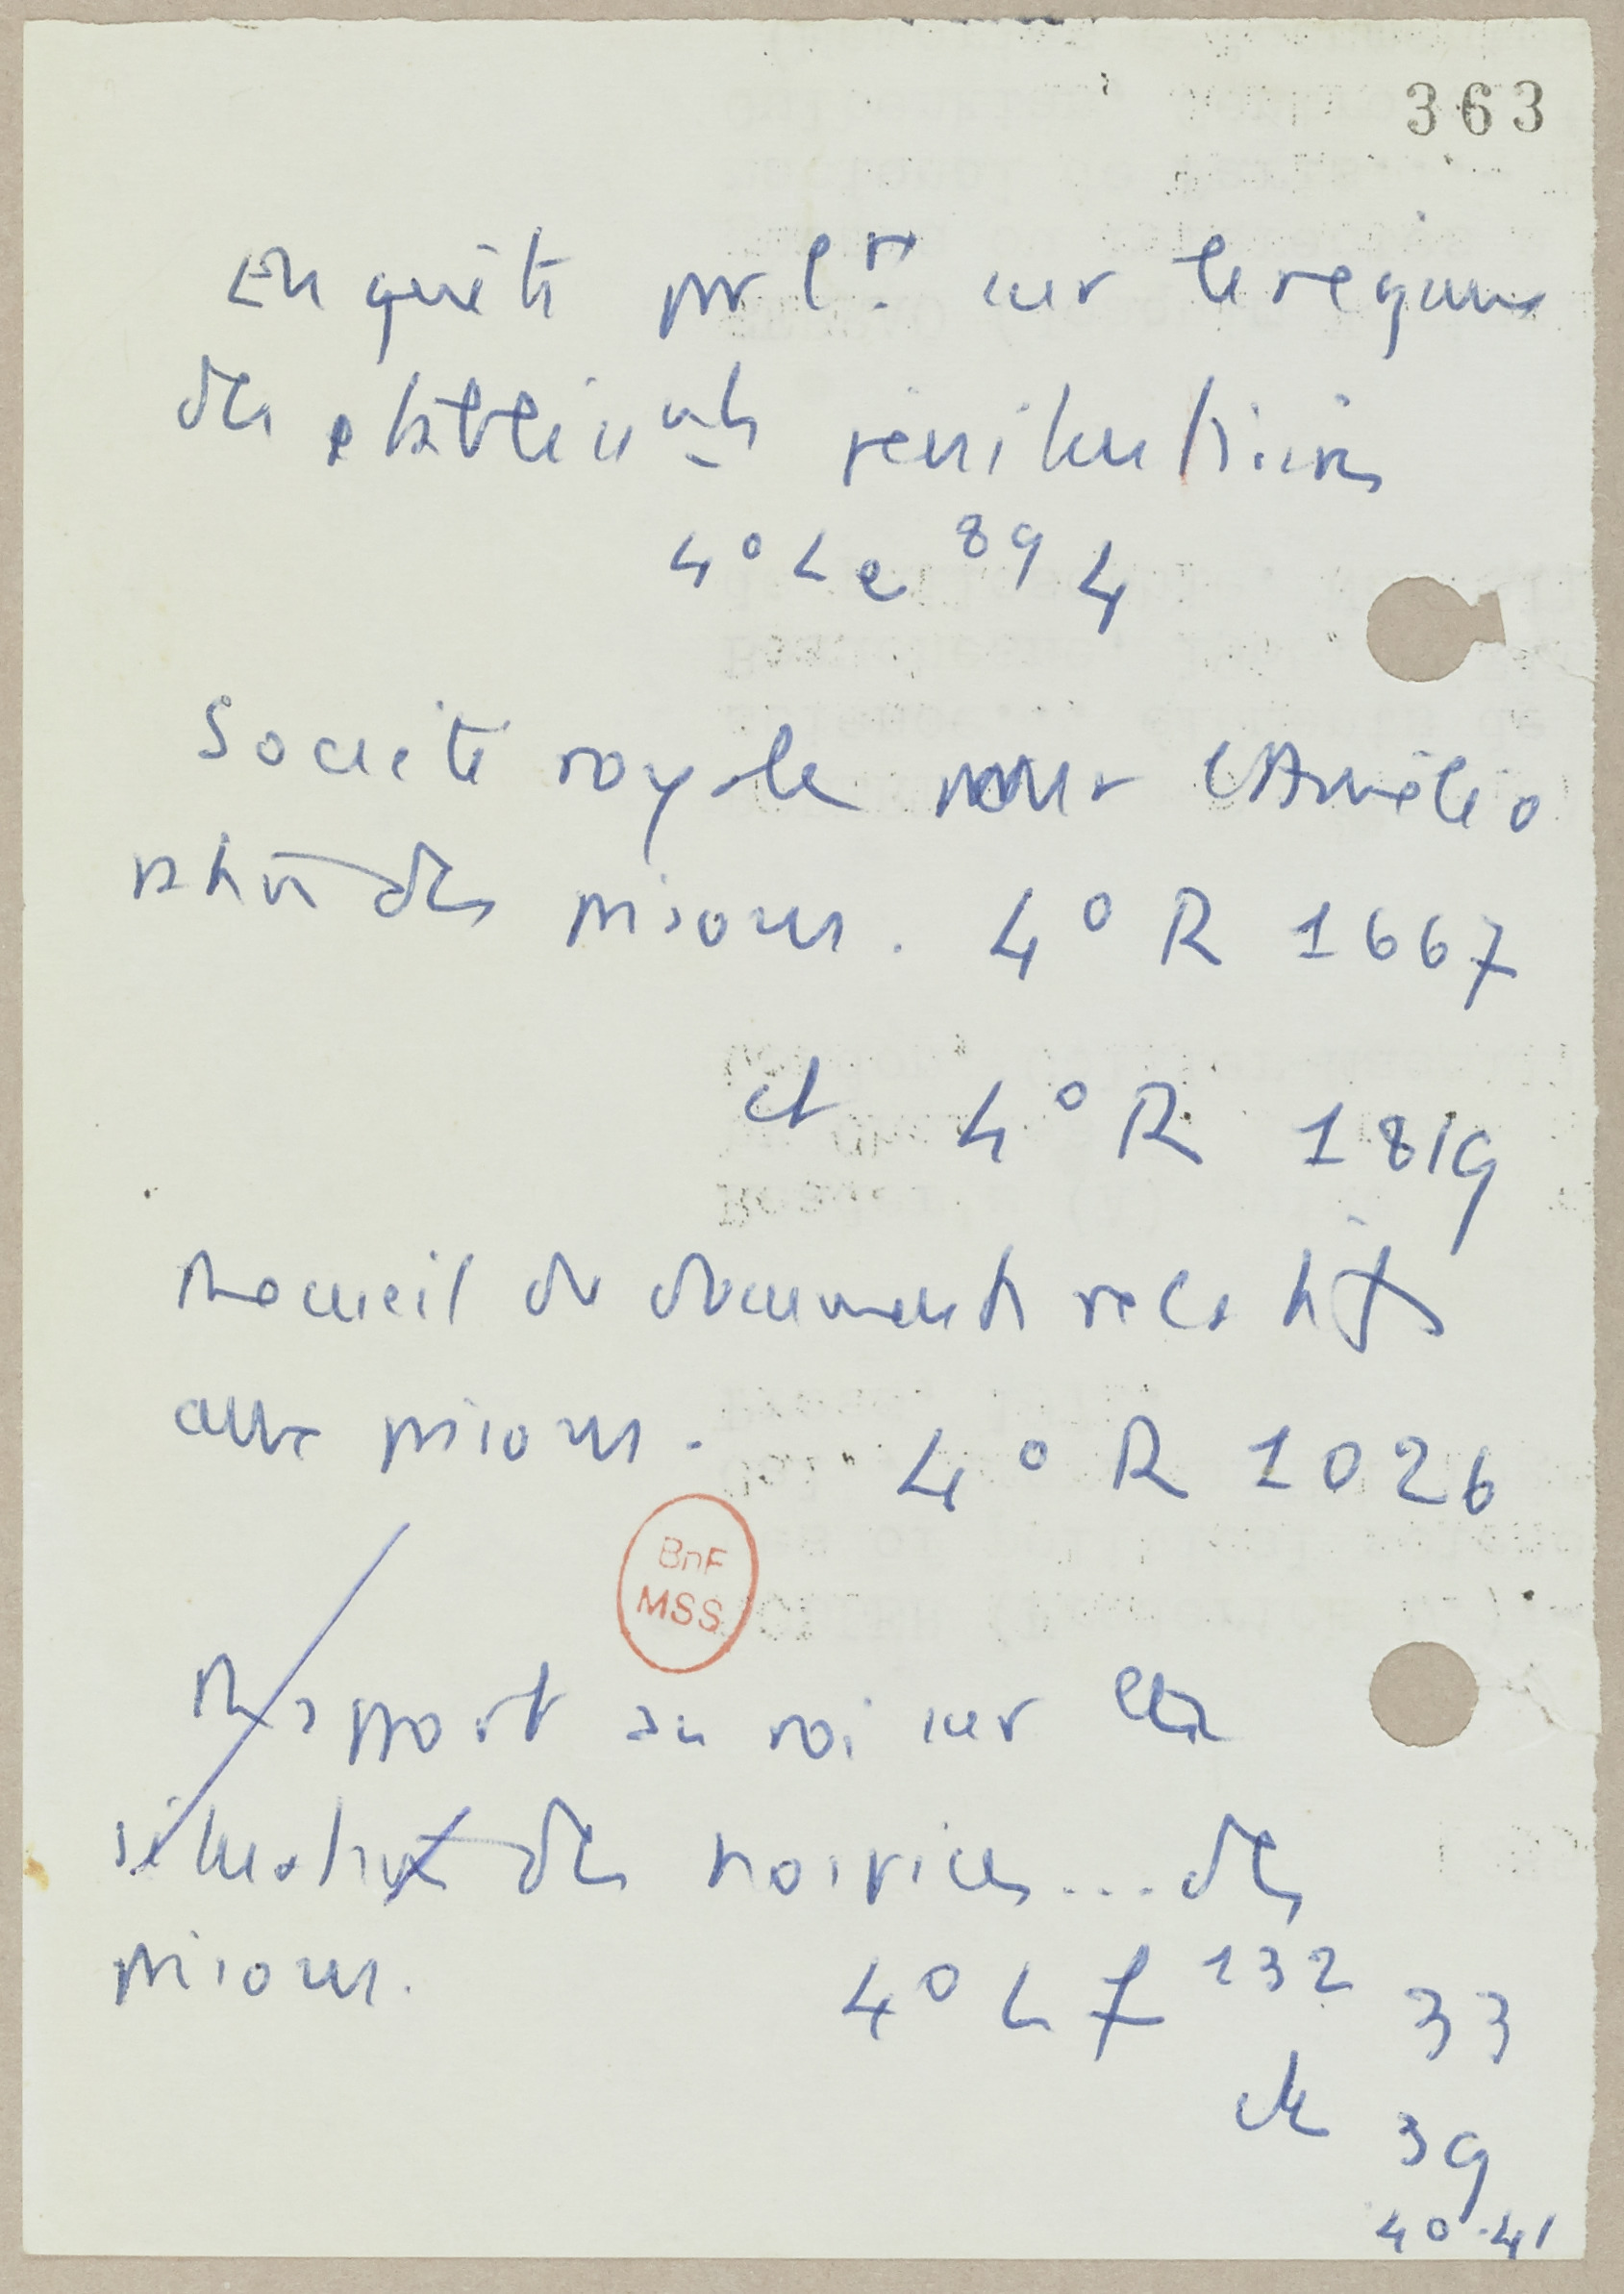 363
Enquête parl.re sur le regime
des etablissements penitentiaires
4° Le 89 4
Société royale pour l'Amélio
ration des prisons. 4° R 1667
et 4° R 1819
Recueil de documents relatifs
aux prisons. 4° R 1026
BnF
MSS
Rapport au roi sur la
situation des hospices.... des
prisons. 4° Lf 132 33
et 39
40.41